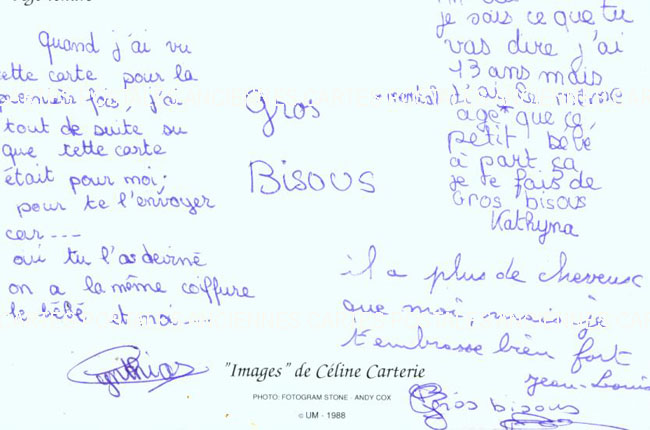 Quand j'ai vu
cette carte pour la
premièr fois, j'ai
tout de suite su
que cette carte
était pour moi;
pour te l'envoyer
car ---
oui tu l'as deviné
on a la même coiffure
le bébé et moi....
Cynthia
Gros
Bisous
je sais ce que tu
vas dire j'ai
13 ans mais
mental j'ai le même
age* que ce
petit bébé
à part ça
je te fais de
Gros bisous
Kathyna
il a plus de cheveux
que moi, mais je
t'embrasse bien fort
Jean-Louis
Gros bisous
"Images" de Céline Carterie
PHOTO: FOTOGRAM STONE - ANDY COX
© UM - 1988